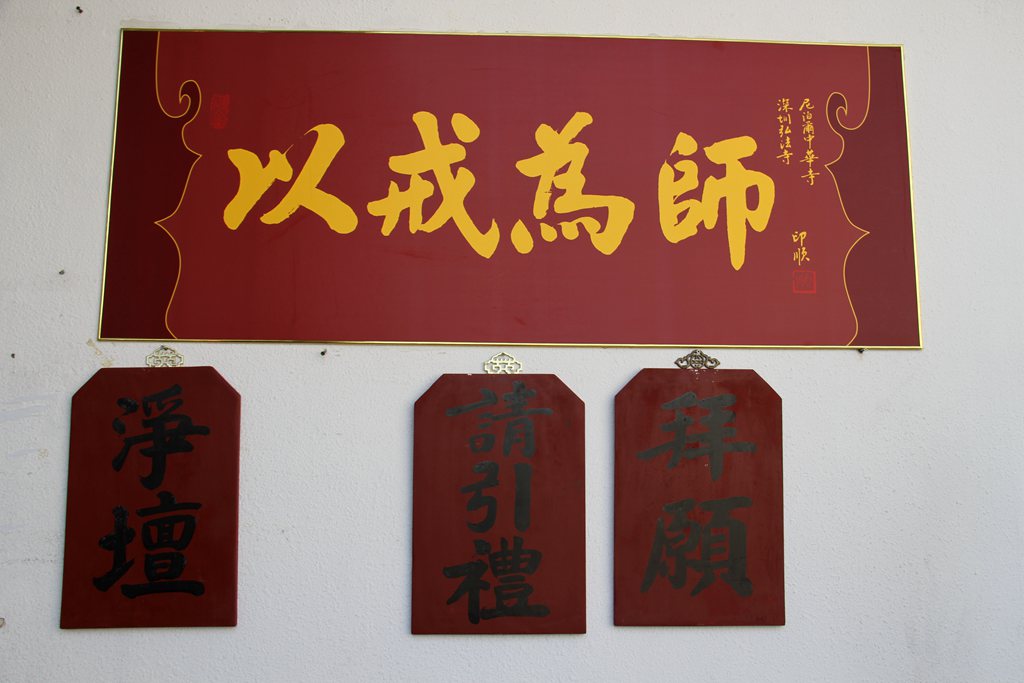 以戒為師
尼泊爾中華寺
深圳弘法寺
印順
淨壇
請引禮
拜願